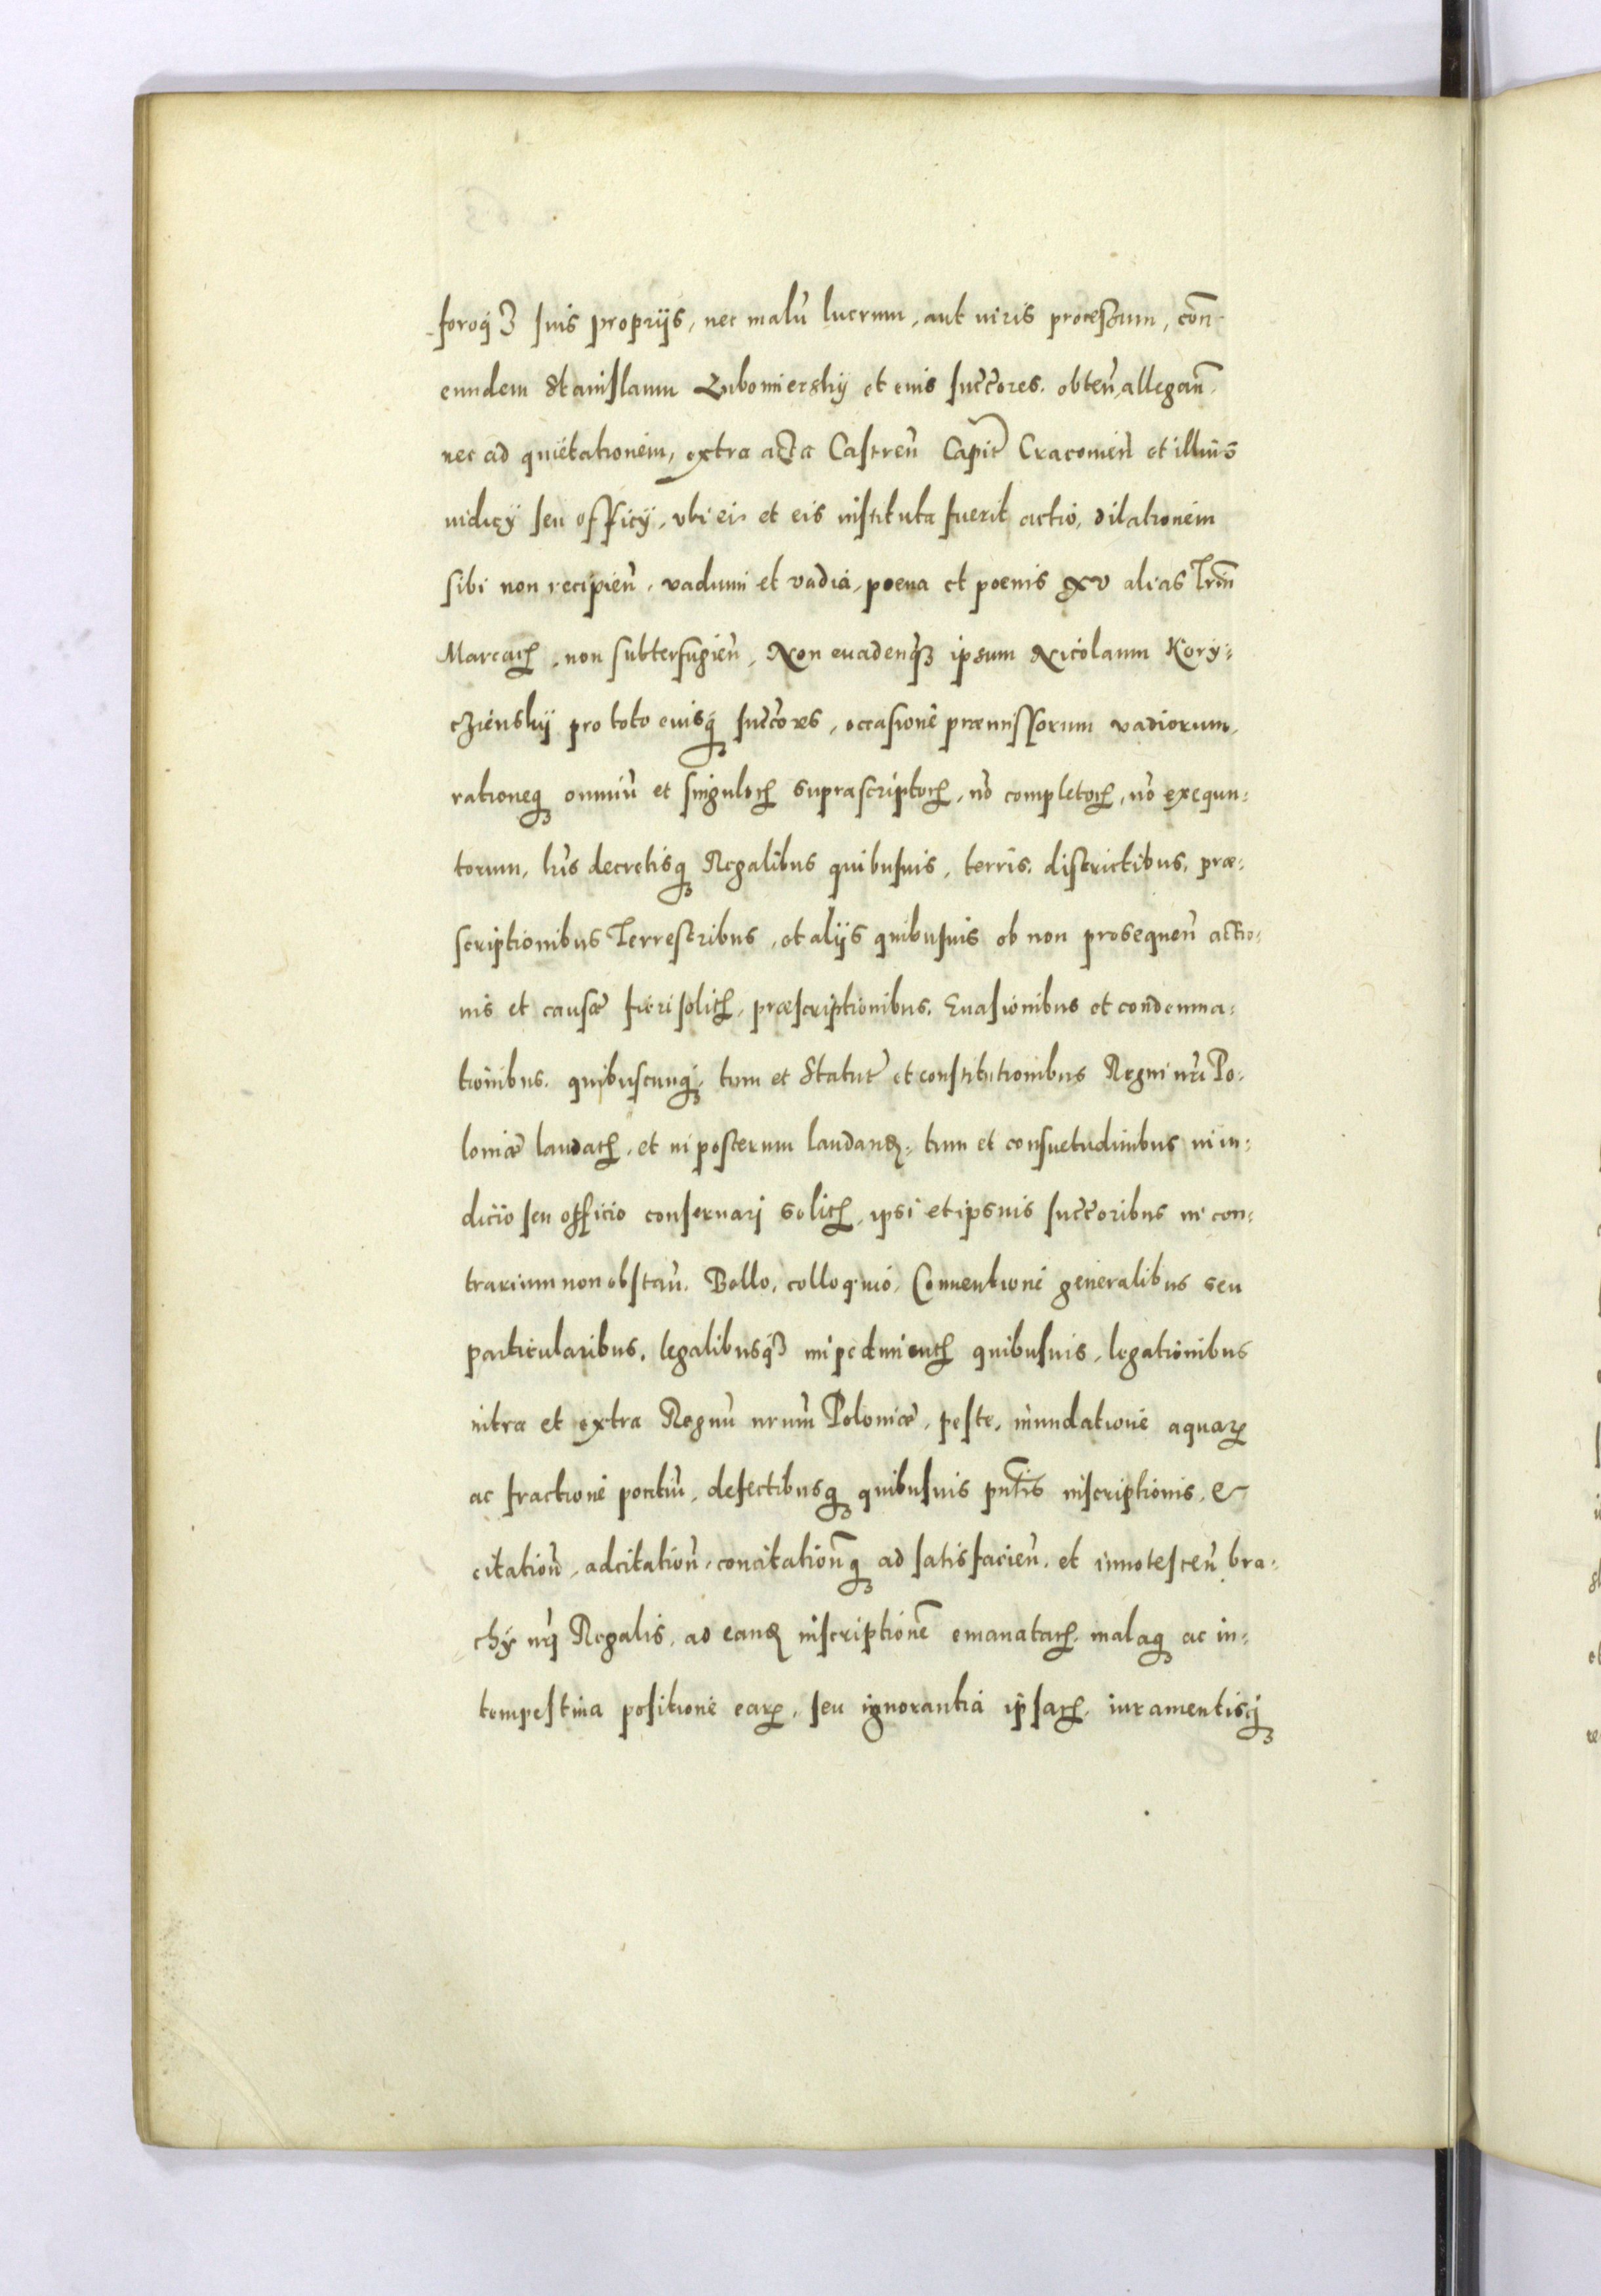 foroq3 suis proprijs, nec malũ lucrum, aut iuris processum, coñ
eundem Stanislaum Lubomierskij et euis succ̃ores. obteñ, allegañ.
nec ad quietationem, extra acta Castreñ Capit̃ Cracouieñ et illius
iudicÿ seu officÿ, vbi ei et eis instituta fuerit actio, dilationem
sibi non recipieñ, vadium et vadia, poena et poenis xv alias Triũ
Marcarꝝ, non subterfugieñ, Non euadenq3 ipsum Nicolaum Kory=
czienskij pro toto euisq3 succ̃ores, occasione præmissorum vadiorum,
rationeq3 omniũ et singulorꝝ suprascriptorꝝ, nõ completorꝝ, nõ exequu=
torum, lris decretisq3 Regalibus quibusuis, terris, districtibus, præ=
scriptionibus Terrestribus, et alijs quibusuis ob non prosequeñ actio=
nis et causæ fieri solitꝝ, præscriptionibus. Euasionibus et condemna=
tionibus. quibuscunq3, tum et Statut̃ et constitutionibus Regni nr̃i Po=
loniæ laudatꝝ, et in posterum laudanđ, tum et consuetudinibus in iu=
dicio seu officio conseruarj solitꝝ, ipsi et ipsius succ̃oribus in con=
trarium non obstañ. Bello, colloquio, Conuentione generalibus seu
particularibus, legalibusq3 impedimentꝝ quibusuis, legationibus
intra et extra Regnũ nrum̃ Poloniæ, peste, inundatione aquarꝝ
ac fractione pontiũ, defectibusq3 quibusuis pñtis inscriptionis, &
citatioñ, adcitatioñ, concitationq̃3 ad satisfacieñ. et innotesceñ bra=
chÿ nr̃i Regalis, ad eanđ inscriptionẽ emanatarꝝ. malaq3 ac in=
tempestiua positione earꝝ, seu ignorantia ipsarꝝ. iuramentisq3